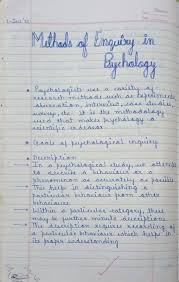 Methods of Enquiry in
Psychology
Psychologists use a variety of
research methods such as experiments
observation, interviews, case studies,
survey, etc. It is the methodology
used that makes psychology a
scientific endeavor
Goals of psychological enquiry
Description
In a psychological study, we attempt
to describe a behaviour or a
phenomenon as accurately as possible
This help in distinguishing a
particular behaviour from other
behaviours
Within a particular category, there
may be further minute descriptions
The description requires recording of
a particular behaviour which helps in
its proper understanding